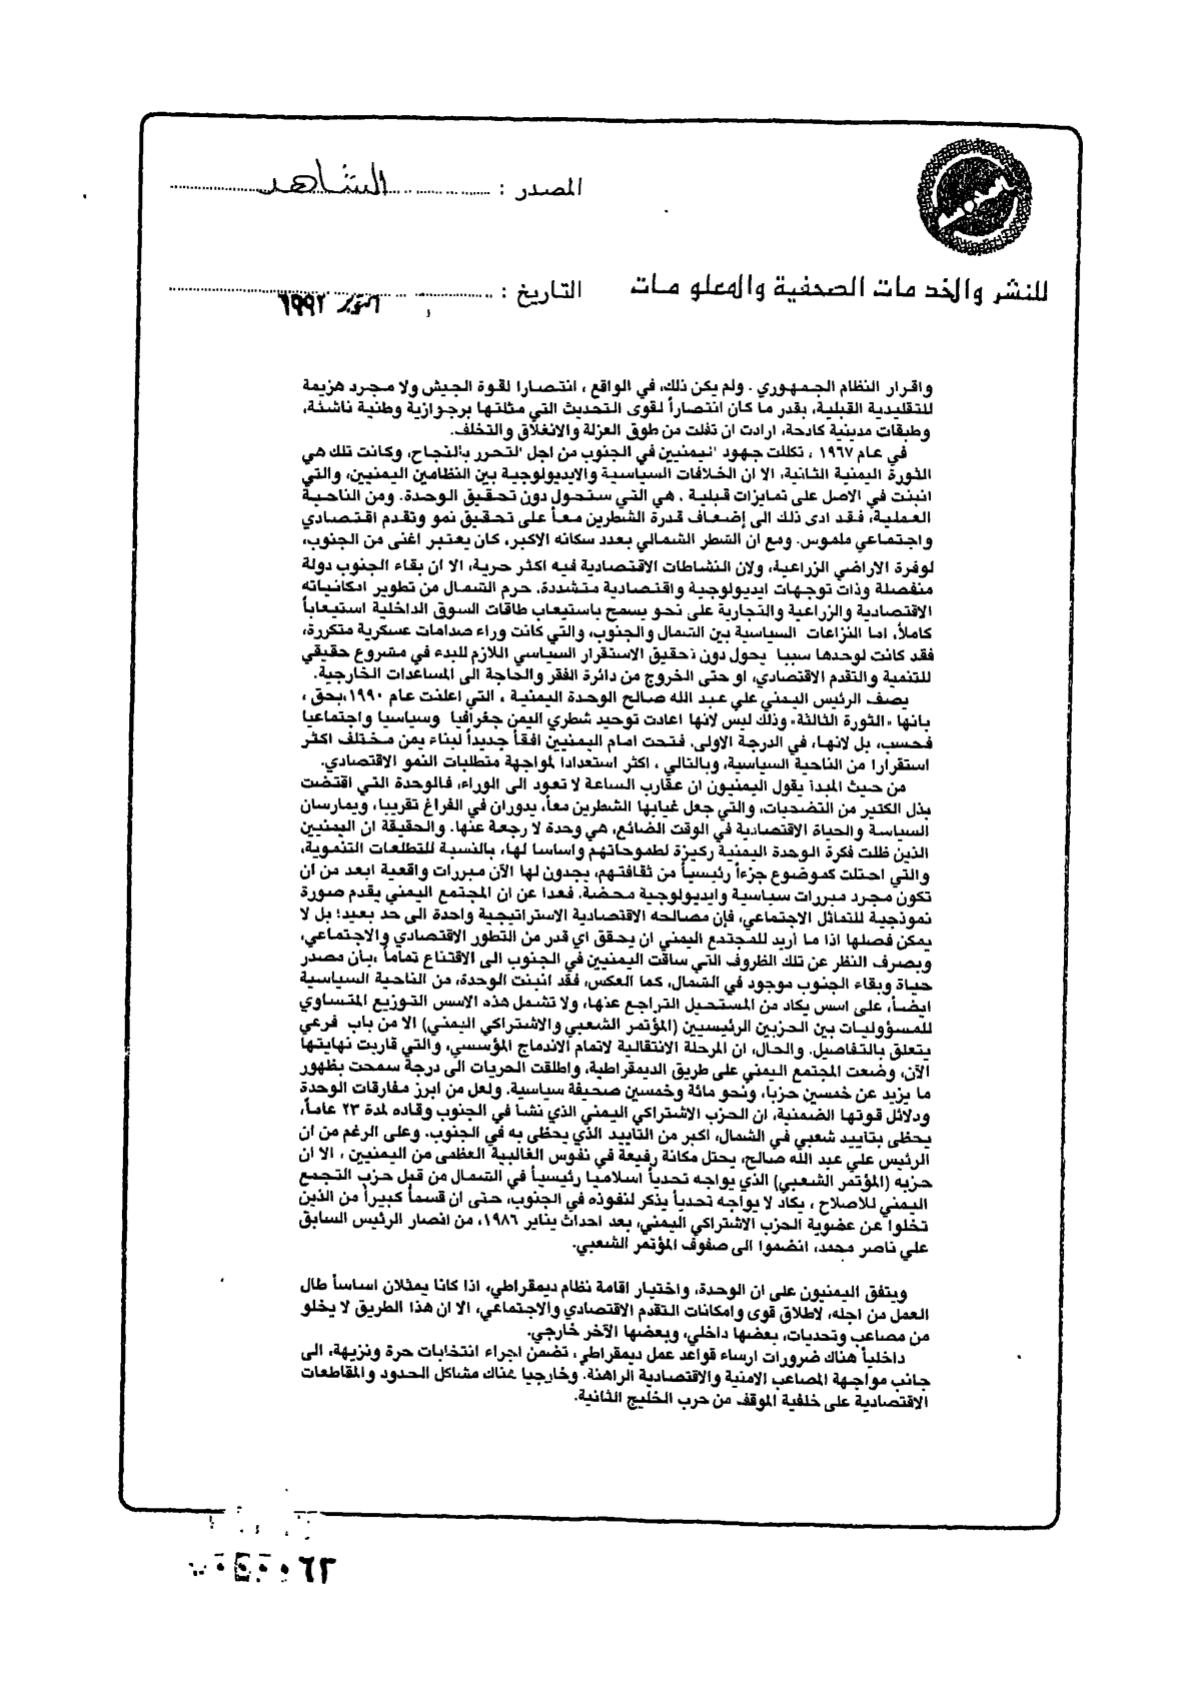 المصدر : الشاهد
للنشر والخدمات الصحفية والمعلومات
التاريخ : اكتوبر ١٩٩٢
واقرار النظام الجمهوري . ولم يكن ذلك، في الواقع ، انتصارا لقوة الجيش ولا مجرد هزيمة
للتقليدية القبلية، بقدر ما كان انتصاراً لقوى التحديث التي مثلتها برجوازية وطنية ناشئة،
وطبقات مدينية كادحة، ارادت ان تفلت من طوق العزلة والانغلاق والتخلف.
في عام ١٩٦٧ ، تكللت جهود اليمنيين في الجنوب من اجل التحرر بالنجاح، وكانت تلك هي
الثورة اليمنية الثانية، الا ان الخلافات السياسية والايديولوجية بين النظامين اليمنيين، والتي
انبنت في الاصل على تمايزات قبلية ، هي التي ستحول دون تحقيق الوحدة. ومن الناحية
العملية، فقد ادى ذلك الى إضعاف قدرة الشطرين معاً على تحقيق نمو وتقدم اقتصادي
واجتماعي ملموس. ومع ان الشطر الشمالي بعدد سكانه الاكبر، كان يعتبر اغنى من الجنوب،
لوفرة الاراضي الزراعية، ولان النشاطات الاقتصادية فيه اكثر حرية، الا ان بقاء الجنوب دولة
منفصلة وذات توجهات ايديولوجية واقتصادية متشددة، حرم الشمال من تطوير امكانياته
الاقتصادية والزراعية والتجارية على نحو يسمح باستيعاب طاقات السوق الداخلية استيعاباً
كاملاً، اما النزاعات السياسية بين الشمال والجنوب، والتي كانت وراء صدامات عسكرية متكررة،
فقد كانت لوحدها سببا يحول دون تحقيق الاستقرار السياسي اللازم للبدء في مشروع حقيقي
للتنمية والتقدم الاقتصادي، او حتى الخروج من دائرة الفقر والحاجة الى المساعدات الخارجية.
يصف الرئيس اليمني علي عبد الله صالح الوحدة اليمنية ، التي اعلنت عام ١٩٩٠،بحق ،
بانها «الثورة الثالثة» وذلك ليس لانها اعادت توحيد شطري اليمن جغرافيا وسياسيا واجتماعيا
فحسب، بل لانها، في الدرجة الاولى. فتحت امام اليمنيين افقاً جديداً لبناء يمن مختلف اكثر
استقرارا من الناحية السياسية، وبالتالي ، اكثر استعدادا لمواجهة متطلبات النمو الاقتصادي.
من حيث المبدا يقول اليمنيون ان عقارب الساعة لا تعود الى الوراء، فالوحدة التي اقتضت
بذل الكثير من التضحيات، والتي جعل غيابها الشطرين معاً، يدوران في الفراغ تقريبا، ويمارسان
السياسة والحياة الاقتصادية في الوقت الضائع، هي وحدة لا رجعة عنها. والحقيقة ان اليمنيين
الذين ظلت فكرة الوحدة اليمنية ركيزة لطموحاتهم واساسا لها، بالنسبة للتطلعات التنموية،
والتي احتلت كموضوع جزءاً رئيسياً من ثقافتهم، يجدون لها الآن مبررات واقعية ابعد من ان
تكون مجرد مبررات سياسية وايديولوجية محضة. فعدا عن ان المجتمع اليمني يقدم صورة
نموذجية للتماثل الاجتماعي، فإن مصالحه الاقتصادية الاستراتيجية واحدة الى حد بعيد؛ بل لا
يمكن فصلها اذا ما أريد للمجتمع اليمني ان يحقق اي قدر من التطور الاقتصادي والاجتماعي،
وبصرف النظر عن تلك الظروف التي ساقت اليمنيين في الجنوب الى الاقتناع تماماً ،بأن مصدر
حياة وبقاء الجنوب موجود في الشمال، كما العكس، فقد انبنت الوحدة، من الناحية السياسية
ايضاً، على اسس يكاد من المستحيل التراجع عنها، ولا تشمل هذه الاسس التوزيع المتساوي
للمسؤوليات بين الحزبين الرئيسيين (المؤتمر الشعبي والاشتراكي اليمني) الا من باب فرعي
يتعلق بالتفاصيل. والحال، ان المرحلة الانتقالية لاتمام الاندماج المؤسسي، والتي قاربت نهايتها
الآن، وضعت المجتمع اليمني على طريق الديمقراطية، واطلقت الحريات الى درجة سمحت بظهور
ما يزيد عن خمسين حزبا، ونحو مائة وخمسين صحيفة سياسية. ولعل من ابرز مفارقات الوحدة
ودلائل قوتها الضمنية، ان الحزب الاشتراكي اليمني الذي نشا في الجنوب وقاده لمدة ٢٣ عاماً،
يحظى بتاييد شعبي في الشمال، اكبر من التاييد الذي يحظى به في الجنوب. وعلى الرغم من ان
الرئيس علي عبد الله صالح، يحتل مكانة رفيعة في نفوس الغالبية العظمى من اليمنيين ، الا ان
حزبه (المؤتمر الشعبي) الذي يواجه تحدياً اسلاميا رئيسياً في الشمال من قبل حزب التجمع
اليمني للاصلاح ، يكاد لا يواجه تحدياً يذكر لنفوذه في الجنوب، حتى ان قسماً كبيراً من الذين
تخلوا عن عضوية الحزب الاشتراكي اليمني، بعد احداث يناير ١٩٨٦، من انصار الرئيس السابق
علي ناصر محمد، انضموا الى صفوف المؤتمر الشعبي.
ويتفق اليمنيون على ان الوحدة، واختيار اقامة نظام ديمقراطي، اذا كانا يمثلان اساساً طال
العمل من اجله، لاطلاق قوى وامكانات التقدم الاقتصادي والاجتماعي، الا ان هذا الطريق لا يخلو
من مصاعب وتحديات، بعضها داخلي، وبعضها الآخر خارجي.
داخلياً هناك ضرورات ارساء قواعد عمل ديمقراطي، تضمن اجراء انتخابات حرة ونزيهة، الى
جانب مواجهة المصاعب الامنية والاقتصادية الراهنة. وخارجيا هناك مشاكل الحدود والمقاطعات
الاقتصادية على خلفية الموقف من حرب الخليج الثانية.